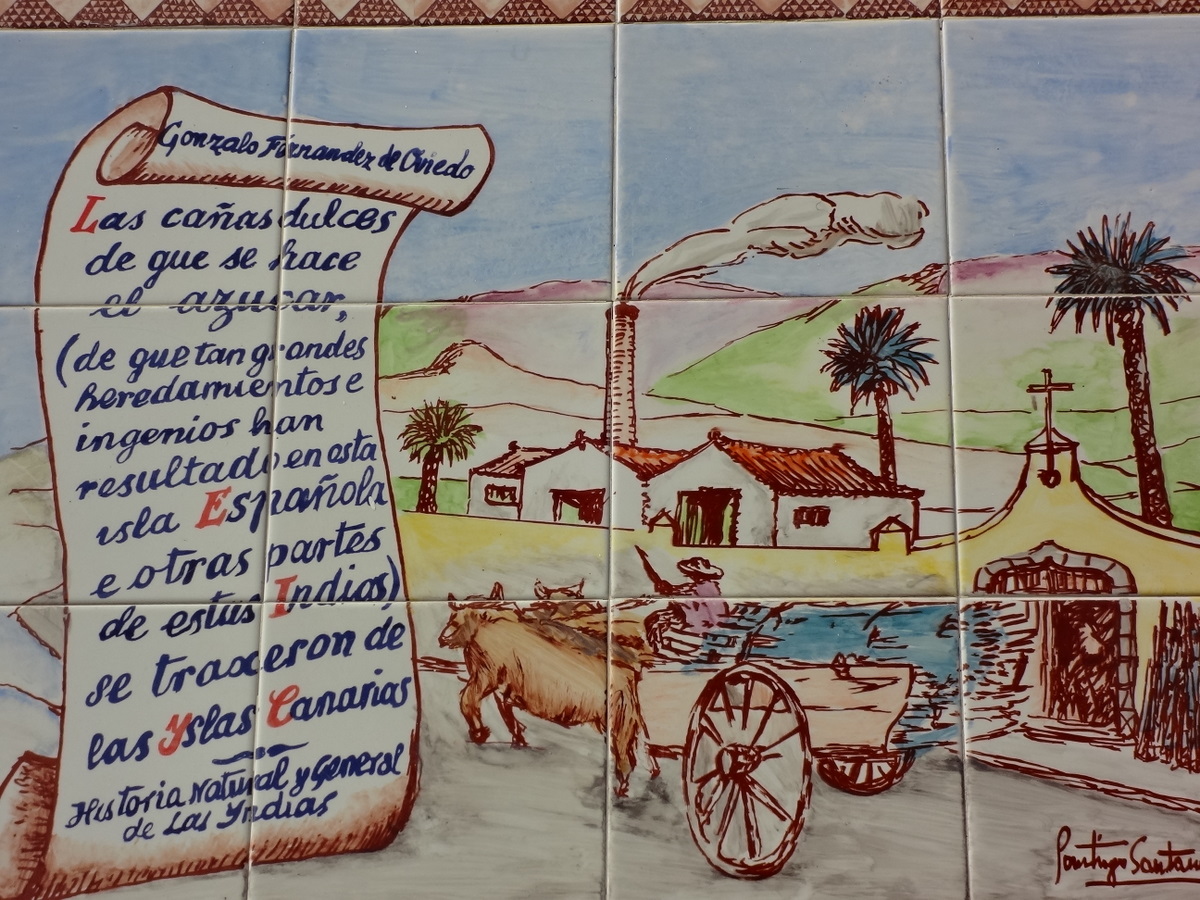 Gonzalo Fernandez de Oviedo
Las cañas dulces
de que se hace
el azucar,
(de que tan grandes
heredamientos e
ingenios han
resultado en esta
isla Española
e otras partes
de estas Indias)
se traxeron de
las Yslas Canarias
Historia Natural y General
de Las Yndias